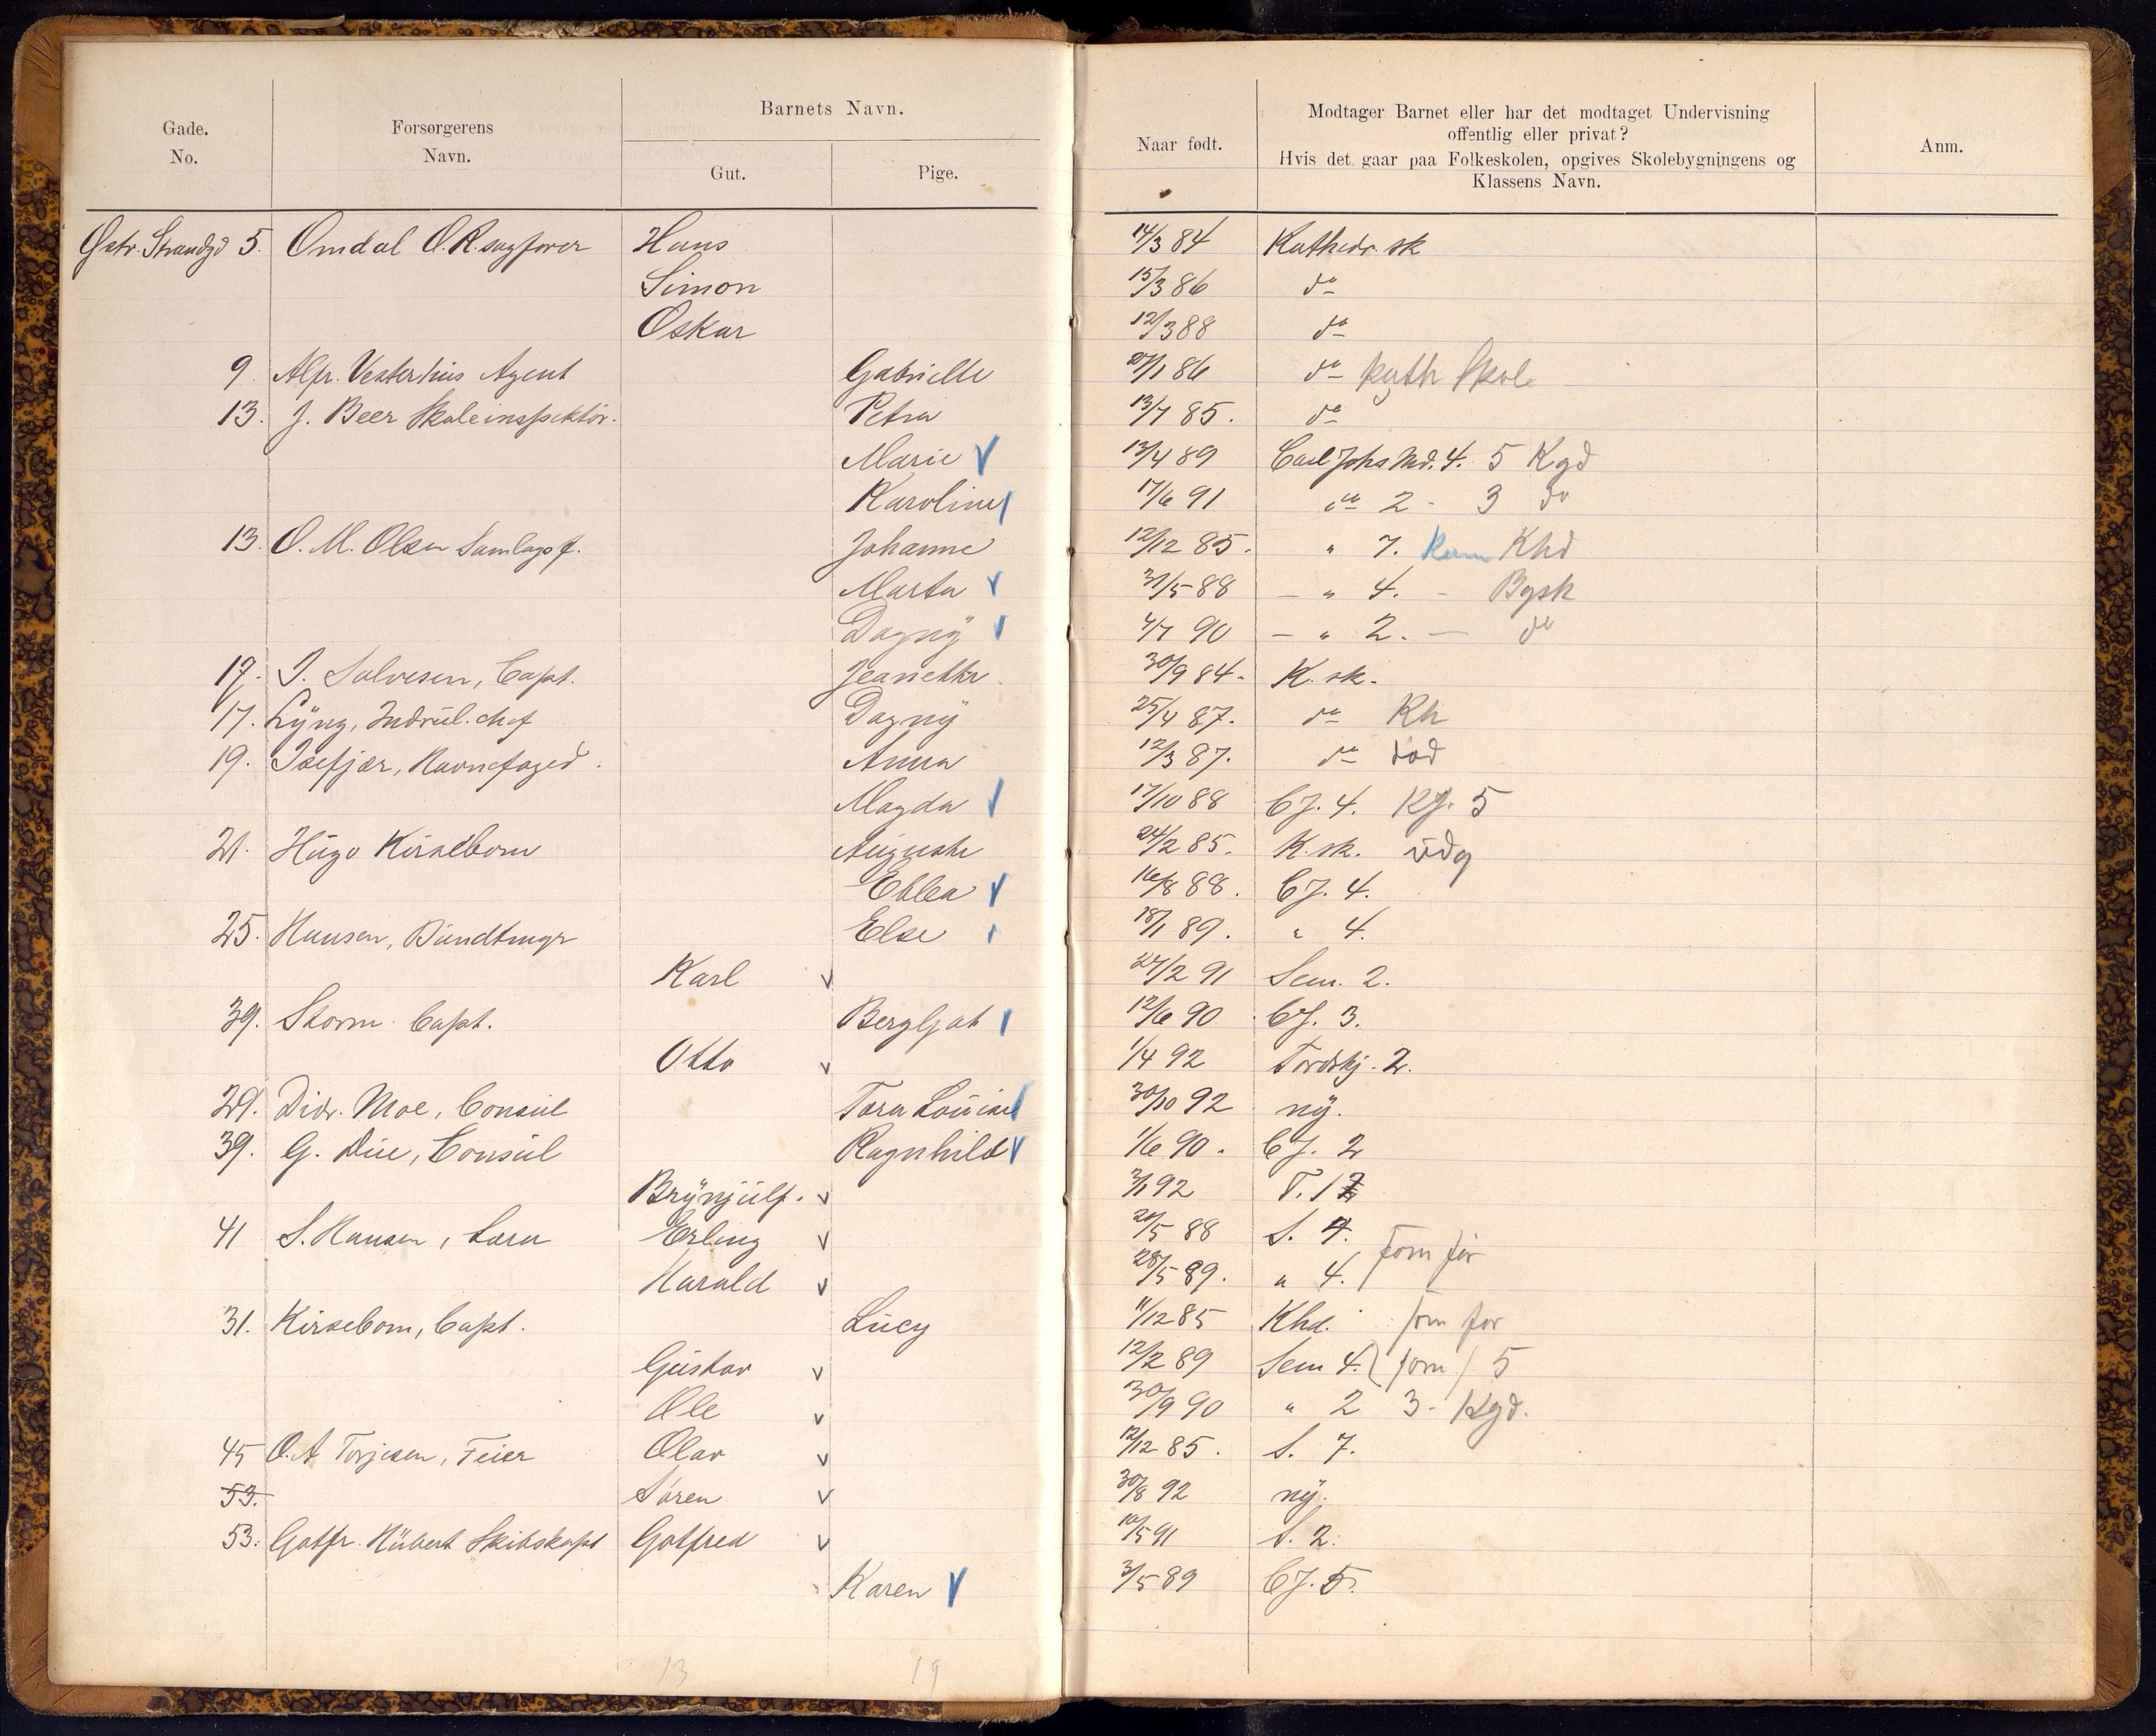 Gade.
No.
Forsørgerens
Navn.
Barnets Navn.
Gut.
Pige.
Naar født.
Modtager Barnet eller har det modtaget Undervisning
offentlig eller privat?
Hvis det gaar paa Folkeskolen, opgives Skolebygningens og
Klassens Navn.
Anm.
Østr. Strandgd 5. Omdal O.R.sagfører Hans 14/3 84 Kathedr. sk
Simon 15/3 86 do
Oskar 12/3 88 do
9. Alfr. Vesterhus Agent Gabrielle 27/1 86 do Kath Skole
13. J. Beer Skoleinspektør. Petra 13/7 85. do
Marie V 13/4 89 Carl Johs Md. 4. 5 Kgd
Karoline 17/6 91 do 2 - 3 do
13. O. M. Olsen Samlagsf. Johanne 12/12 85. " 7. Khd
Marta v 31/5 88 - " 4. - Bysk
Dagny 4/7 90 - " 2. - do
17. J. Salvesen, Capt. Jeanette 30/9 84. K. sk.
17. Lyng, Indrul. chef Dagny 25/4 87. do Kh
19. Isefjær, Havnefoged. Anna 12/3 87. do død
Magda 17/10 88 CJ. 4. KJ. 5
21. Hugo Kirsebom Auguste 24/2 85. K. sk. udg
Ebba v 16/8 88. CJ. 4.
25. Hansen, Bundtmgr Else 18/1 89. " 4.
Karl v 27/2 91 Sem. 2.
39. Storm Capt. Bergljot 12/6 90 CJ. 3.
Otto v 1/4 92 Tordskj. 2.
29. Didr. Moe, Consul Tora Louise 30/10 92 ny.
39. G. Due, Consul Ragnhild v 1/6 90. CJ. 2
Brynjulf. v 3/1 92 T. 1
41 S. Hansen, Lærer Erling v 20/5 88 S. 4. som før
Harald v 28/5 89. " 4.
31. Kirsebom, Capt. Lucy 11/12 85 Khd. som før
Gustav v 12/2 89 Sem 4. (som) 5
Ole v 30/9 90 " 2 3 - Kgd.
45 O. A Torjesen, Feier Olav v 12/12 85. S. 7.
53. Søren v 30/8 92 ny.
53. Gotfr. Hubert Skibskapt Gotfred v 10/5 91 S. 2.
Karen V 3/5 89 CJ. 5.
13 19